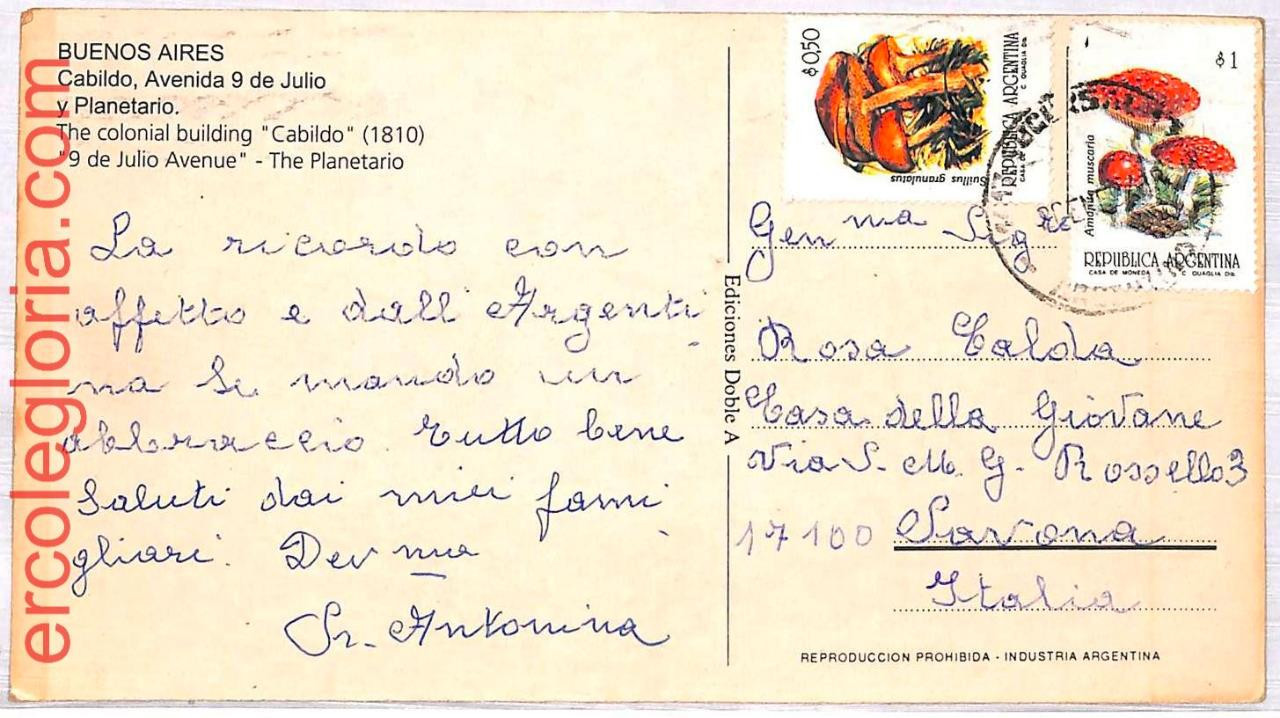 BUENOS AIRES
Cabildo, Avenida 9 de Julio
y Planetario.
The colonial building "Cabildo" (1810)
"9 de Julio Avenue" - The Planetario
La ricordo con
affetto e dall'Argenti
na Le mando un
abbraccio. Tutto bene
Saluti dai miei fami
gliari. Dev ma
Sr. Antonina
Ediciones Doble A
$0,50
Suillus granulatus
REPUBLICA ARGENTINA
CASA DE MONEDA C QUAGLIA DIS.
$1
Amanita muscaria
REPUBLICA ARGENTINA
CASA DE MONEDA C QUAGLIA DIS.
Gen ma Sig ra
Rosa Calda
Casa della Giovane
Via S. M. G. Rossello 3
17100 Savona
Italia
REPRODUCCION PROHIBIDA - INDUSTRIA ARGENTINA
ercolegloria.com